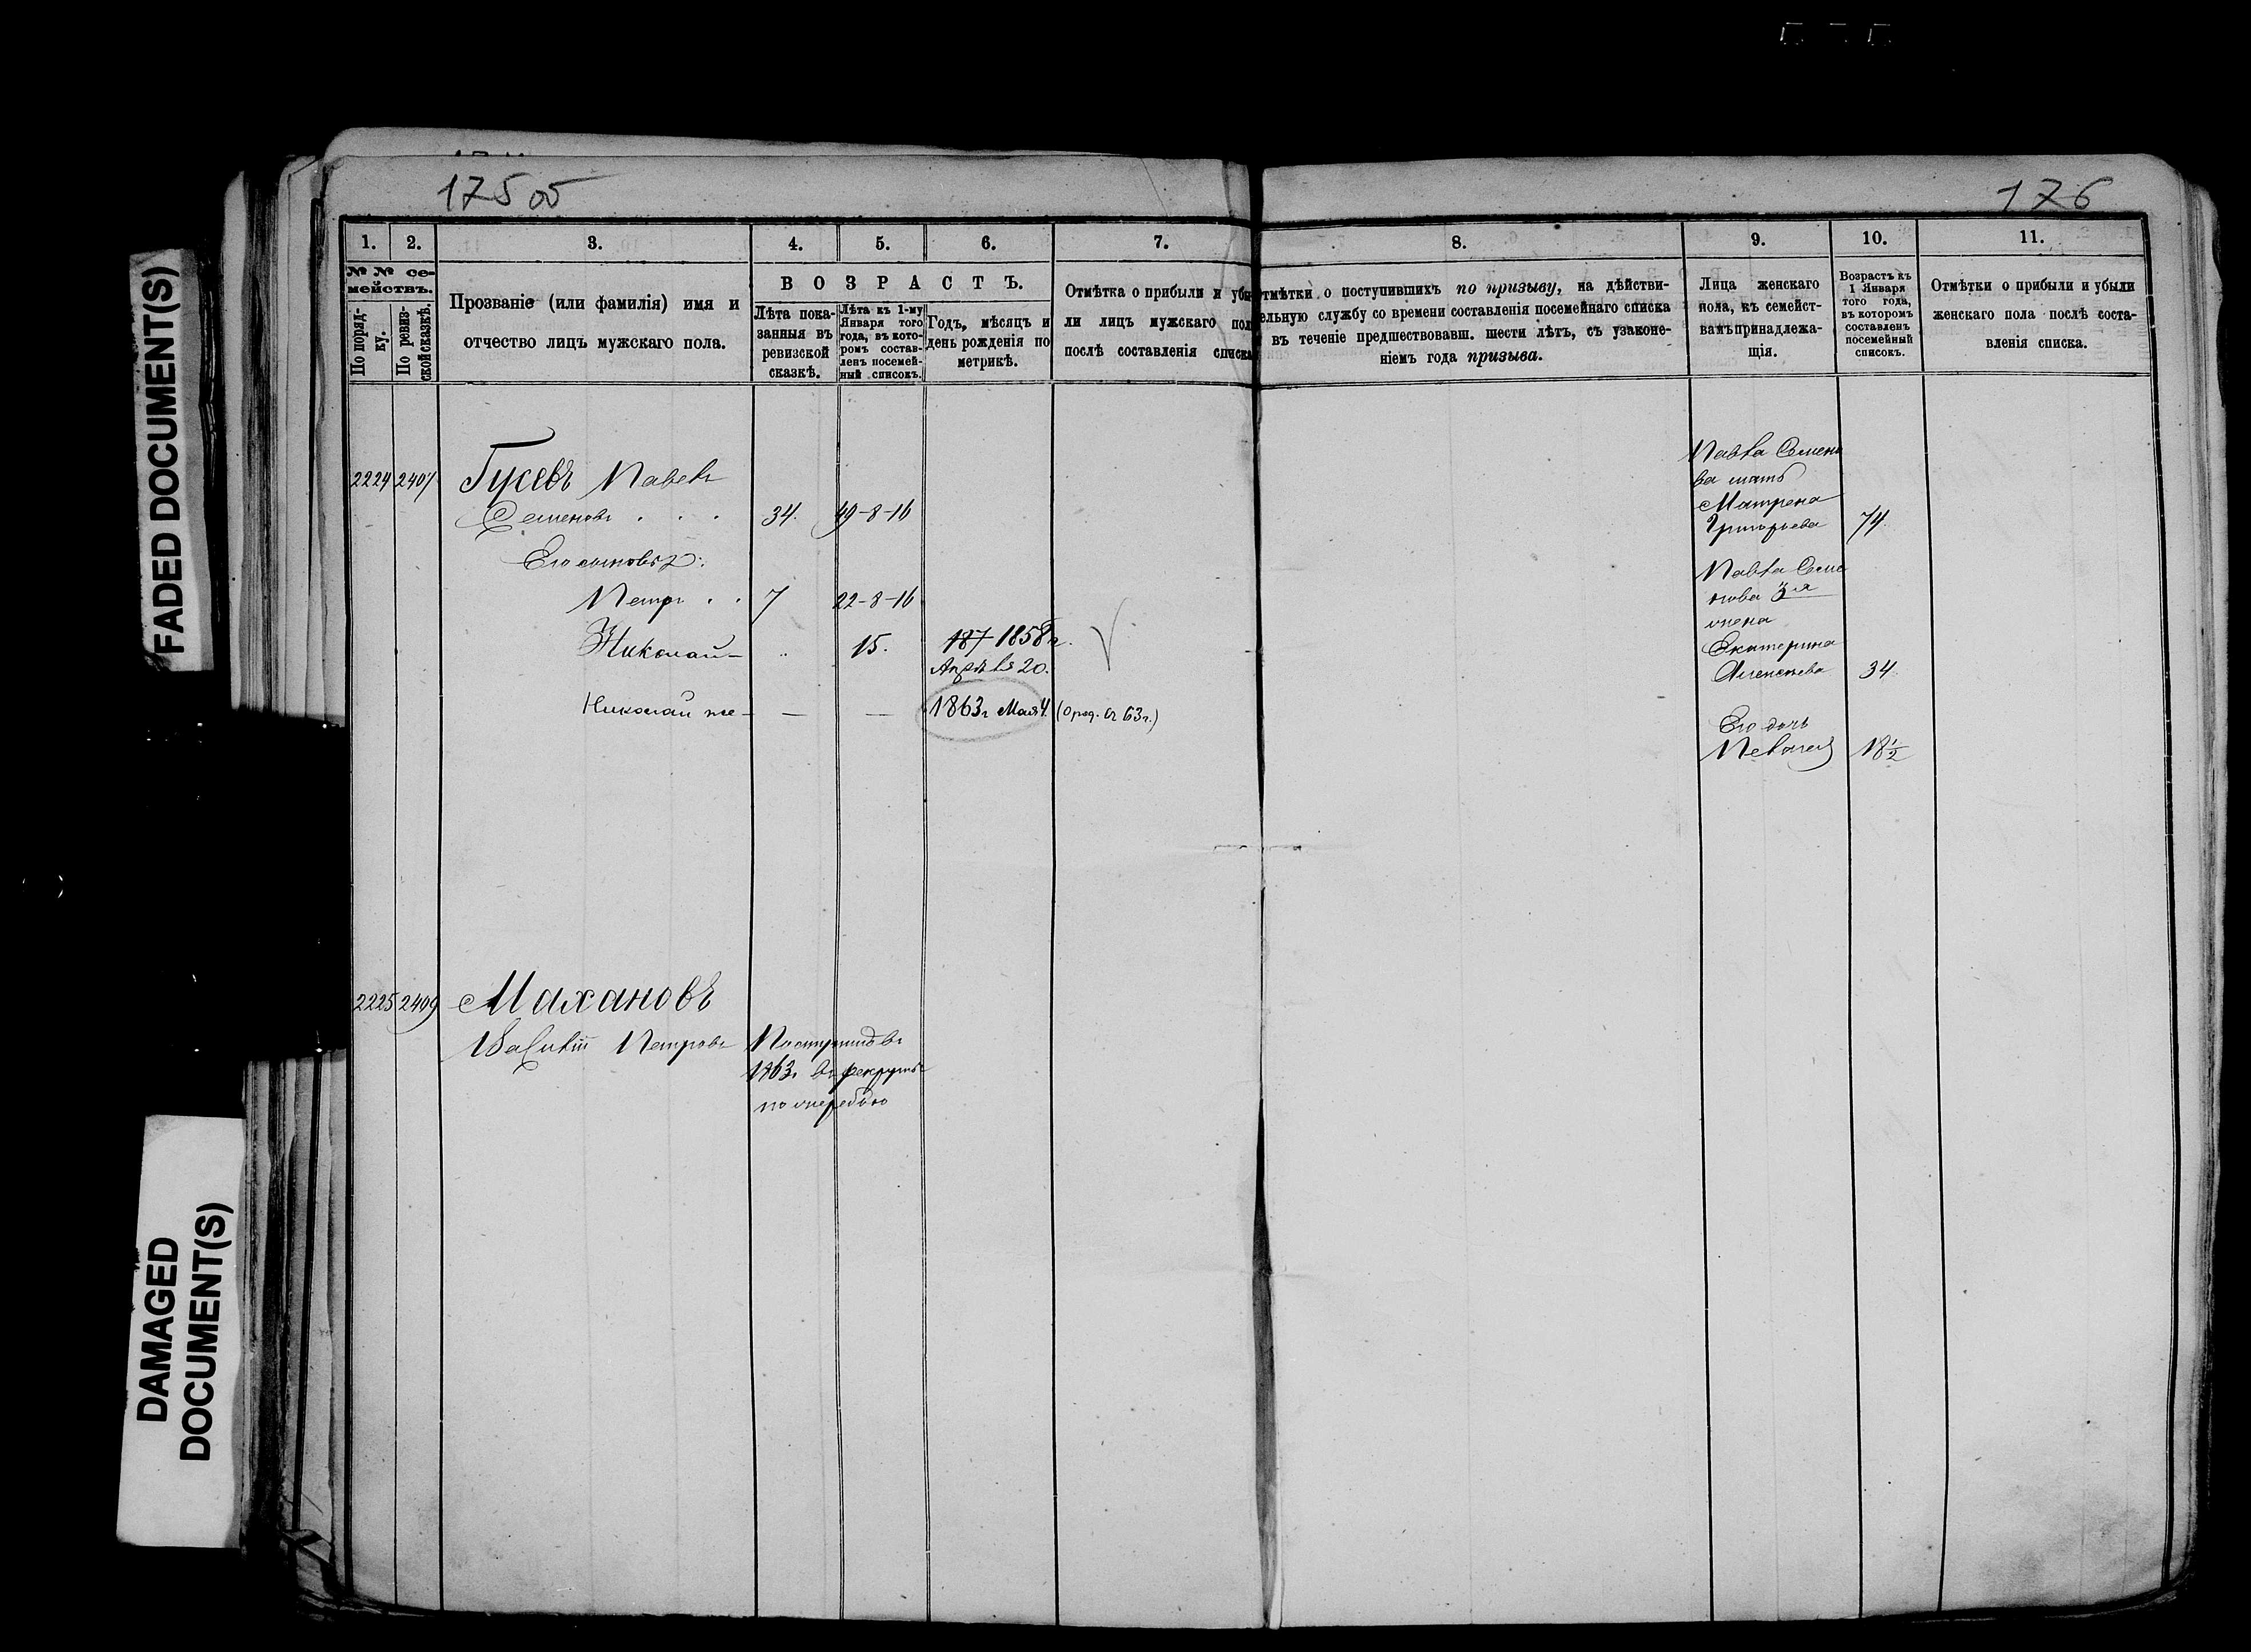 FADED DOCUMENT(S)
DAMAGED
DOCUMENT(S)
175 об
176
1. 2. 3. 4. 5. 6. 7. 8. 9. 10. 11.
№ № се-
мействъ.
По поряд-
ку.
По ревиз-
ской сказкѣ.
Прозваніе (или фамилія) имя и
отчество лицъ мужскаго пола.
ВОЗРАСТЪ.
Лѣта пока-
занныя въ
ревизской
сказкѣ.
Лѣта къ 1-му
Января того
года, въ кото-
ромъ состав-
ленъ посемей-
ный списокъ.
Годъ, мѣсяцъ и
день рожденія по
метрикѣ.
Отмѣтка о прибыли и убы
ли лицъ мужскаго пол
послѣ составленія списка
тмѣтки о поступившихъ по призыву, на дѣйстви-
ельную службу со времени составленія посемейнаго списка
въ теченіе предшествовавш. шести лѣтъ, съ узаконе-
ніемъ года призыва.
Лица женскаго
пола, къ семейст-
вамъ принадлежа-
щія.
Возрастъ къ
1 Января
того года,
въ которомъ
составленъ
посемейный
списокъ.
Отмѣтки о прибыли и убыли
женскаго пола послѣ соста-
вленія списка.
2224 2407 Гусевъ Павелъ
Семеновъ . . . 34. 49-8-16
Его сыновья:
Петръ . . 7 22-8-16
Николай - .. 15. 187 1858 г.
Апрѣля 20.
Николай же - — — 1863 г Мая 4. (о род. въ 63 г.)
Павла Семено
ва мать
Матрена
Григорьева 74.
Павла Семе
нова 3я
жена
Екатерина
Алексѣева 34.
Его дочь
Пелагея 18 1/2
2225 2409 Махановъ
Василій Петровъ Поступилъ въ
1863 г въ рекруты
по жеребью